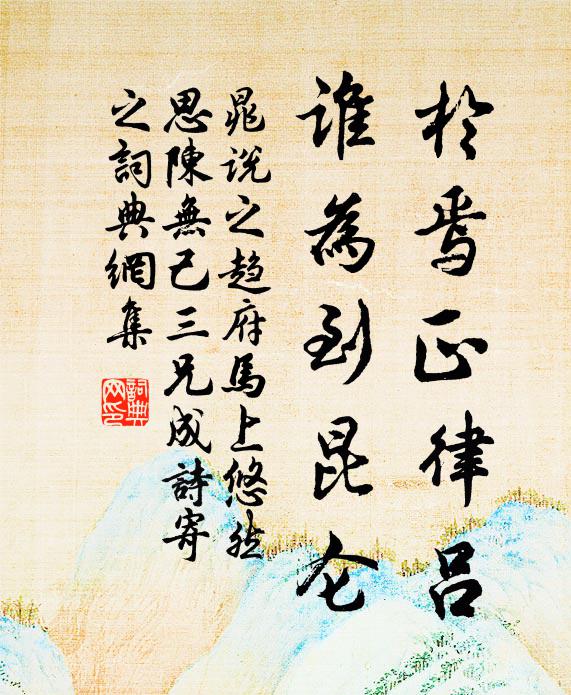 於焉正律呂
誰為到昆仑
晁说之趋府馬上悠然
思陳無己三兄成詩寄
之詞典網集
詞典
网印